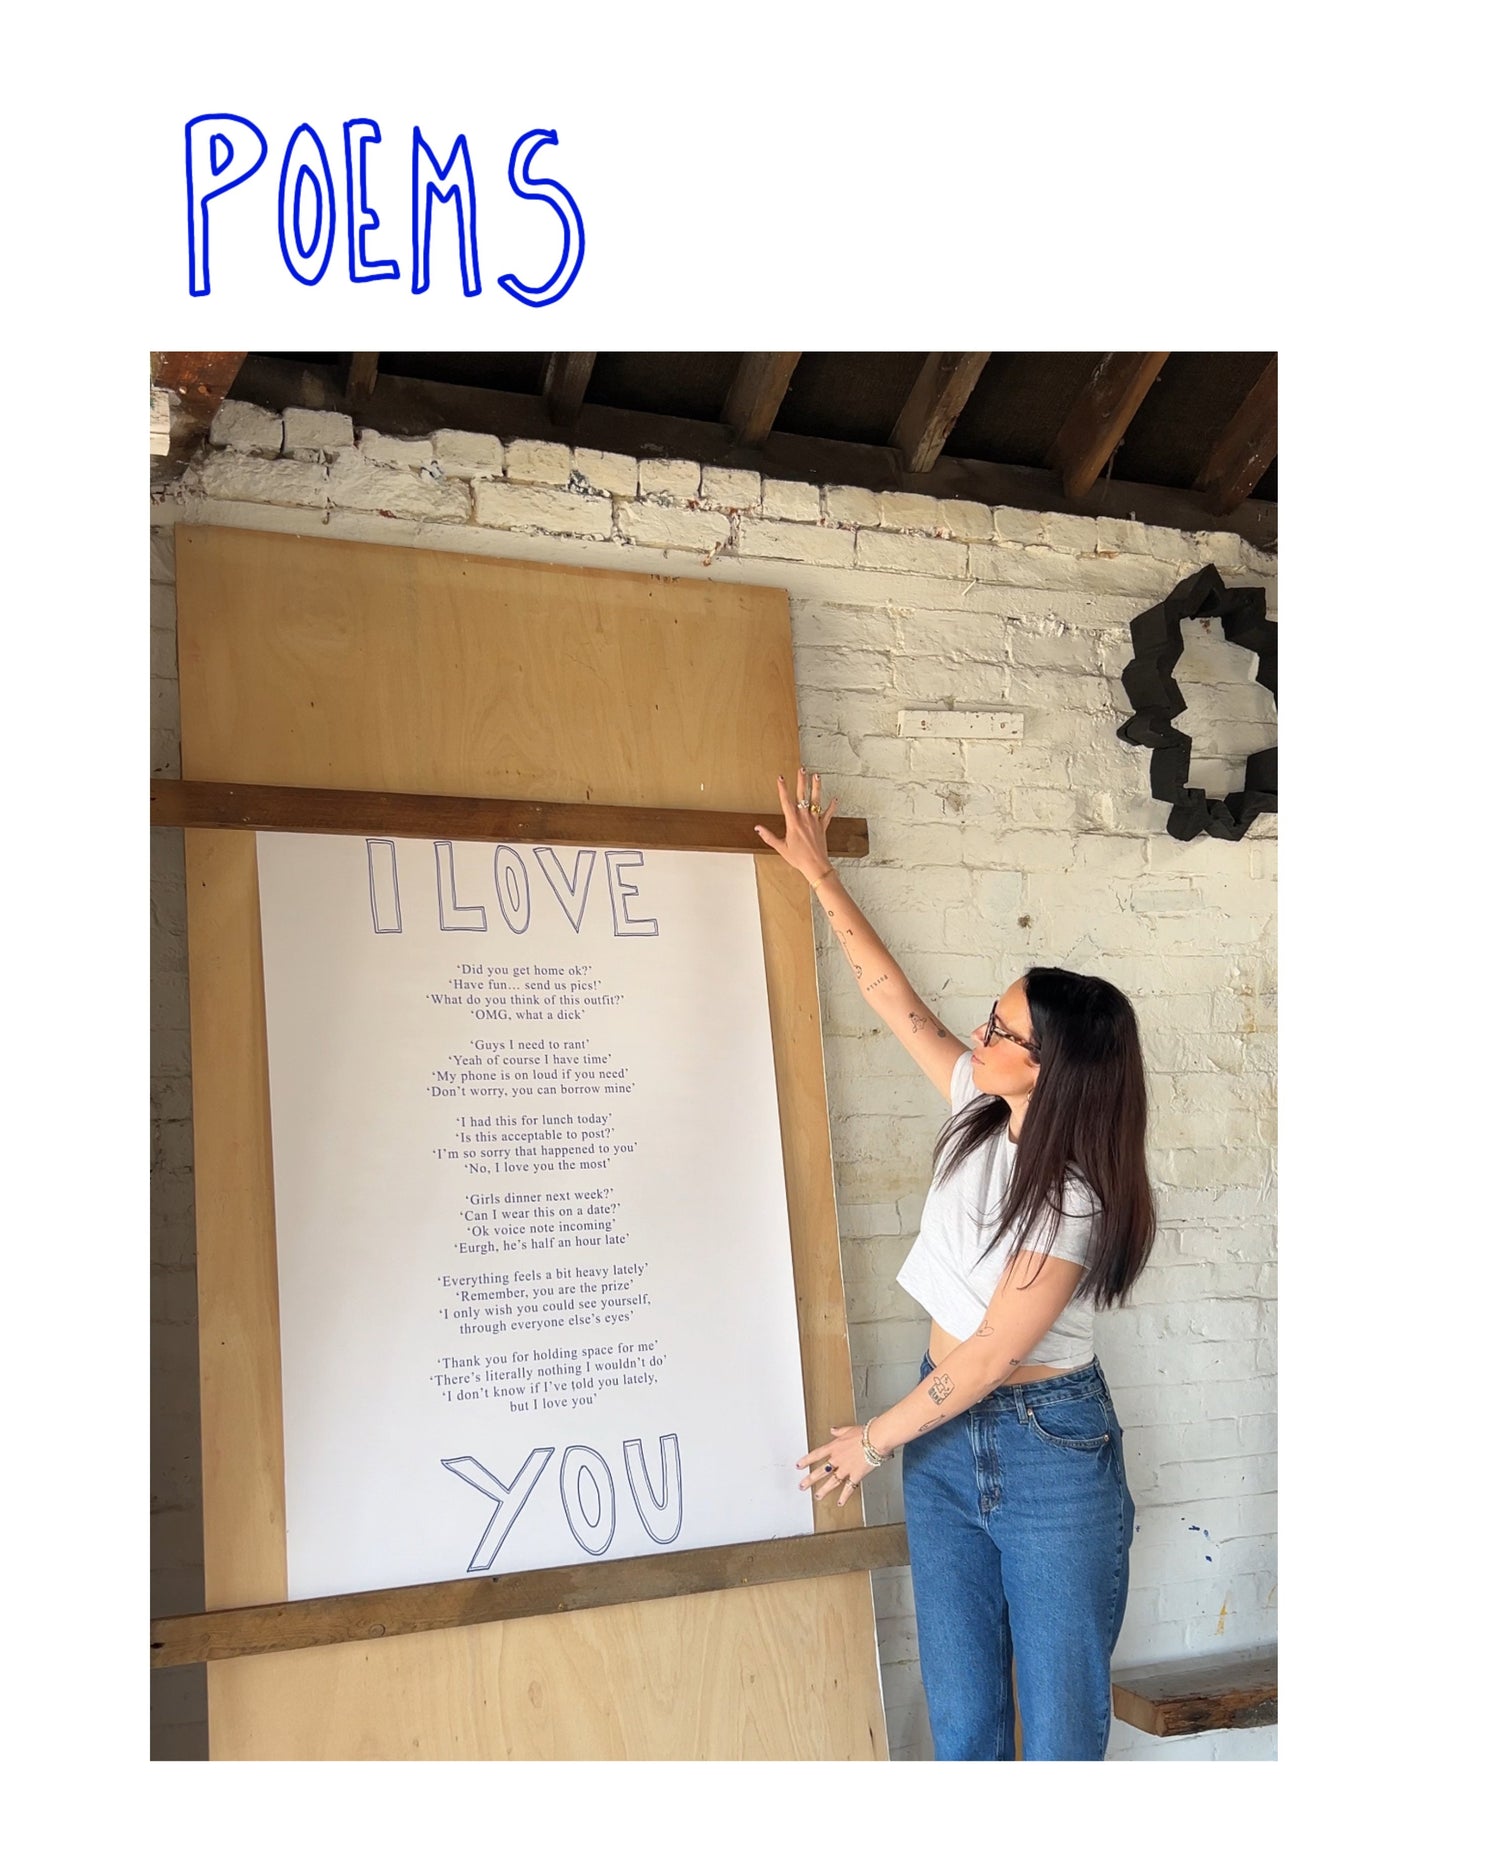 POEMS
I LOVE
‘Did you get home ok?’
‘Have fun... send us pics!’
‘What do you think of this outfit?’
‘OMG, what a dick’
‘Guys I need to rant’
‘Yeah of course I have time’
‘My phone is on loud if you need’
‘Don’t worry, you can borrow mine’
‘I had this for lunch today’
‘Is this acceptable to post?’
‘I’m so sorry that happened to you’
‘No, I love you the most’
‘Girls dinner next week?’
‘Can I wear this on a date?’
‘Ok voice note incoming’
‘Eurgh, he’s half an hour late’
‘Everything feels a bit heavy lately’
‘Remember, you are the prize’
‘I only wish you could see yourself,
through everyone else’s eyes’
‘Thank you for holding space for me’
‘There’s literally nothing I wouldn’t do’
‘I don’t know if I’ve told you lately,
but I love you’
YOU